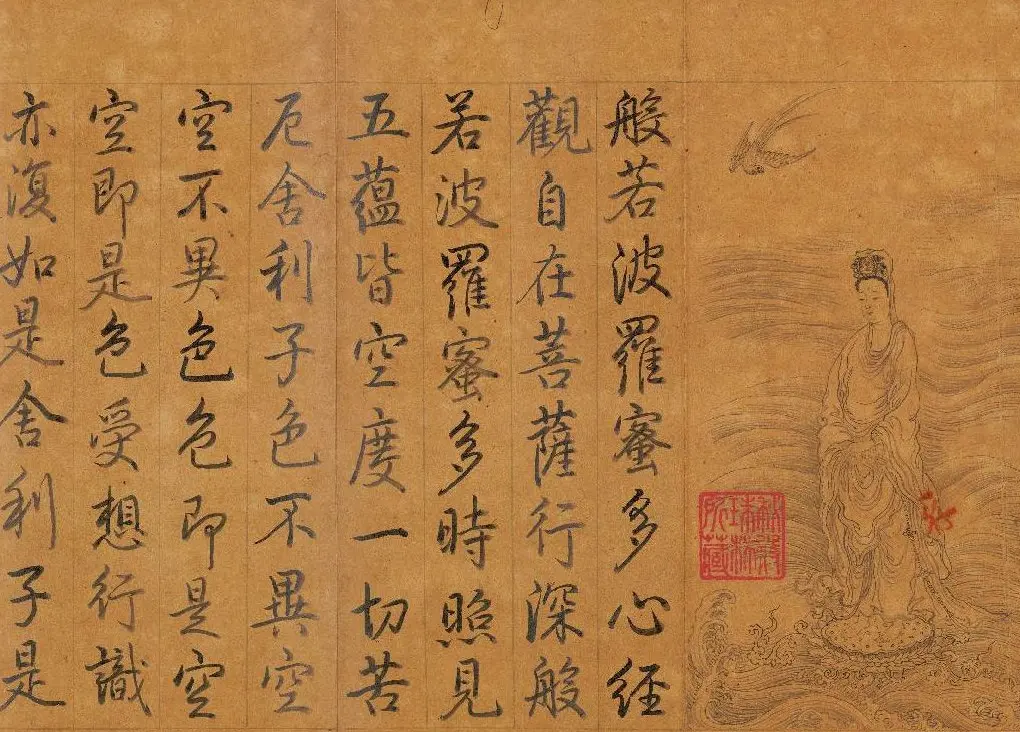 秘殿珠林所藏
般若波羅蜜多心經
觀自在菩薩行深般
若波羅蜜多時照見
五蘊皆空度一切苦
厄舍利子色不異空
空不異色色即是空
空即是色受想行識
亦復如是舍利子是